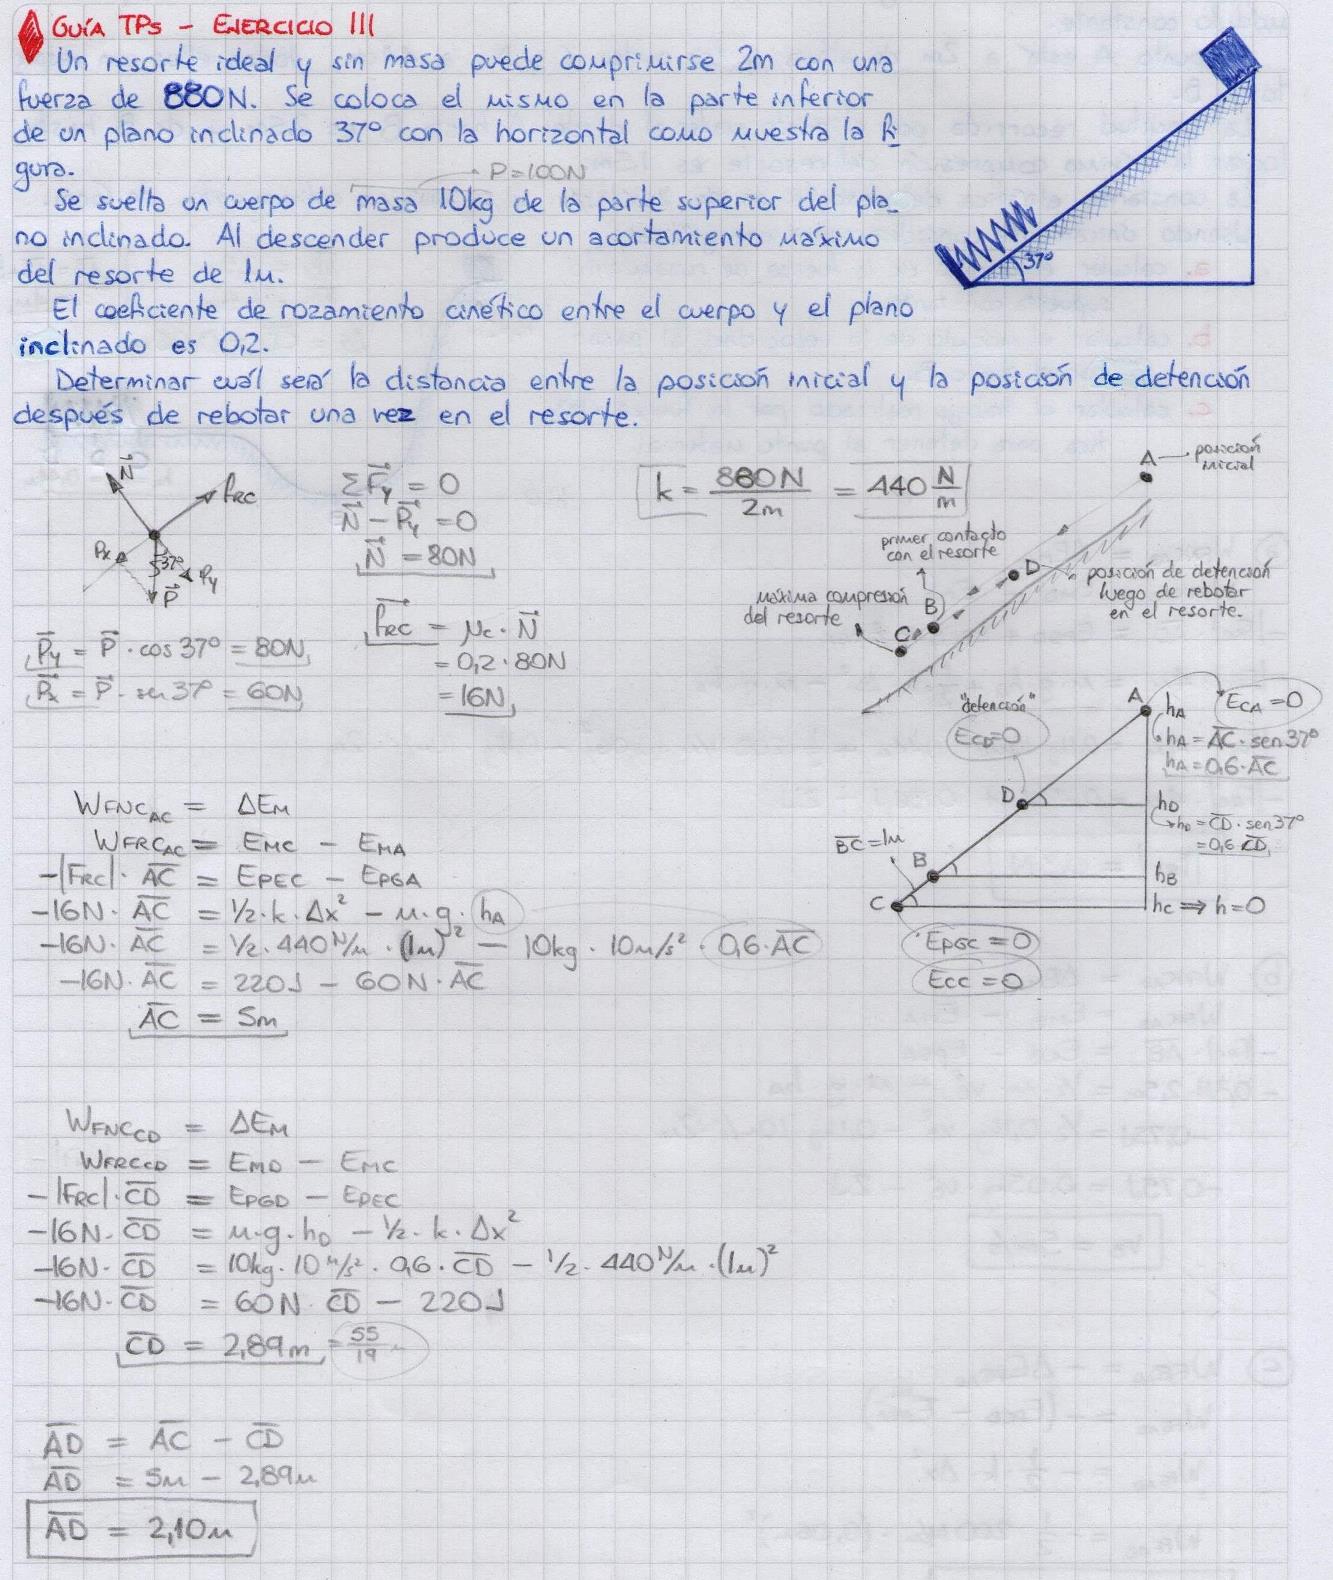 GUÍA TPs - EJERCICIO III
Un resorte ideal y sin masa puede comprimirse 2m con una
fuerza de 880N. Se coloca el mismo en la parte inferior
de un plano inclinado 37° con la horizontal como muestra la fi_
gura.
P=100N
Se suelta un cuerpo de masa 10kg de la parte superior del pla_
no inclinado. Al descender produce un acortamiento máximo
del resorte de 1m.
El coeficiente de rozamiento cinético entre el cuerpo y el plano
inclinado es 0,2.
Determinar cuál será la distancia entre la posición inicial y la posición de detención
después de rebotar una vez en el resorte.
37°
N
fRC
Px
37°
Py
P
ΣFy = 0
N - Py = 0
N = 80N
k = 880N/2m = 440 N/m
A
posición
inicial
primer contacto
con el resorte
D
posición de detención
luego de rebotar
en el resorte.
máxima compresión
del resorte
B
C
Py = P · cos 37° = 80N
Px = P · sen 37° = 60N
fRC = μc · N
= 0,2 · 80N
= 16N
"detención"
ECD=0
A
hA
ECA=0
hA = AC · sen37°
hA = 0,6 · AC
D
hD
hD = CD · sen37°
= 0,6 CD
BC = 1m
B
hB
C
hC ⇒ h=0
EPGC = 0
ECC = 0
WFNCAC = ΔEM
WFRCAC = EMC - EMA
-|FRC| · AC = EPEC - EPGA
-16N · AC = 1/2 · k · Δx² - m · g · hA
-16N · AC = 1/2 · 440N/m · (1m)² - 10kg · 10m/s² · 0,6 · AC
-16N · AC = 220J - 60N · AC
AC = 5m
WFNCCD = ΔEM
WFRCCD = EMD - EMC
-|FRC| · CD = EPGD - EPEC
-16N · CD = m · g · hD - 1/2 · k · Δx²
-16N · CD = 10kg · 10m/s² · 0,6 · CD - 1/2 · 440N/m · (1m)²
-16N · CD = 60N · CD - 220J
CD = 2,89m = 55/19 m
AD = AC - CD
AD = 5m - 2,89m
AD = 2,10m